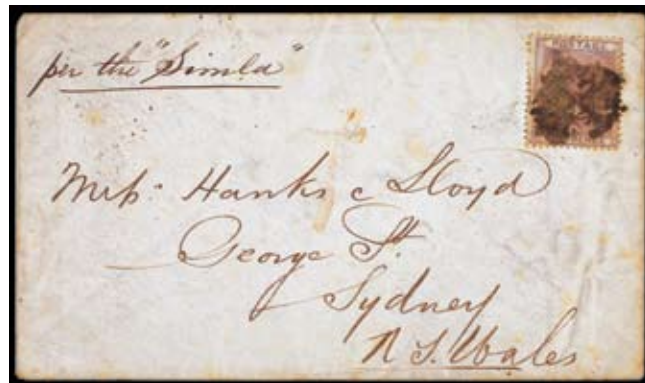 per the "Simla"
POSTAGE
Messrs. Hanks & Lloyd
George St.
Sydney
N. S. Wales